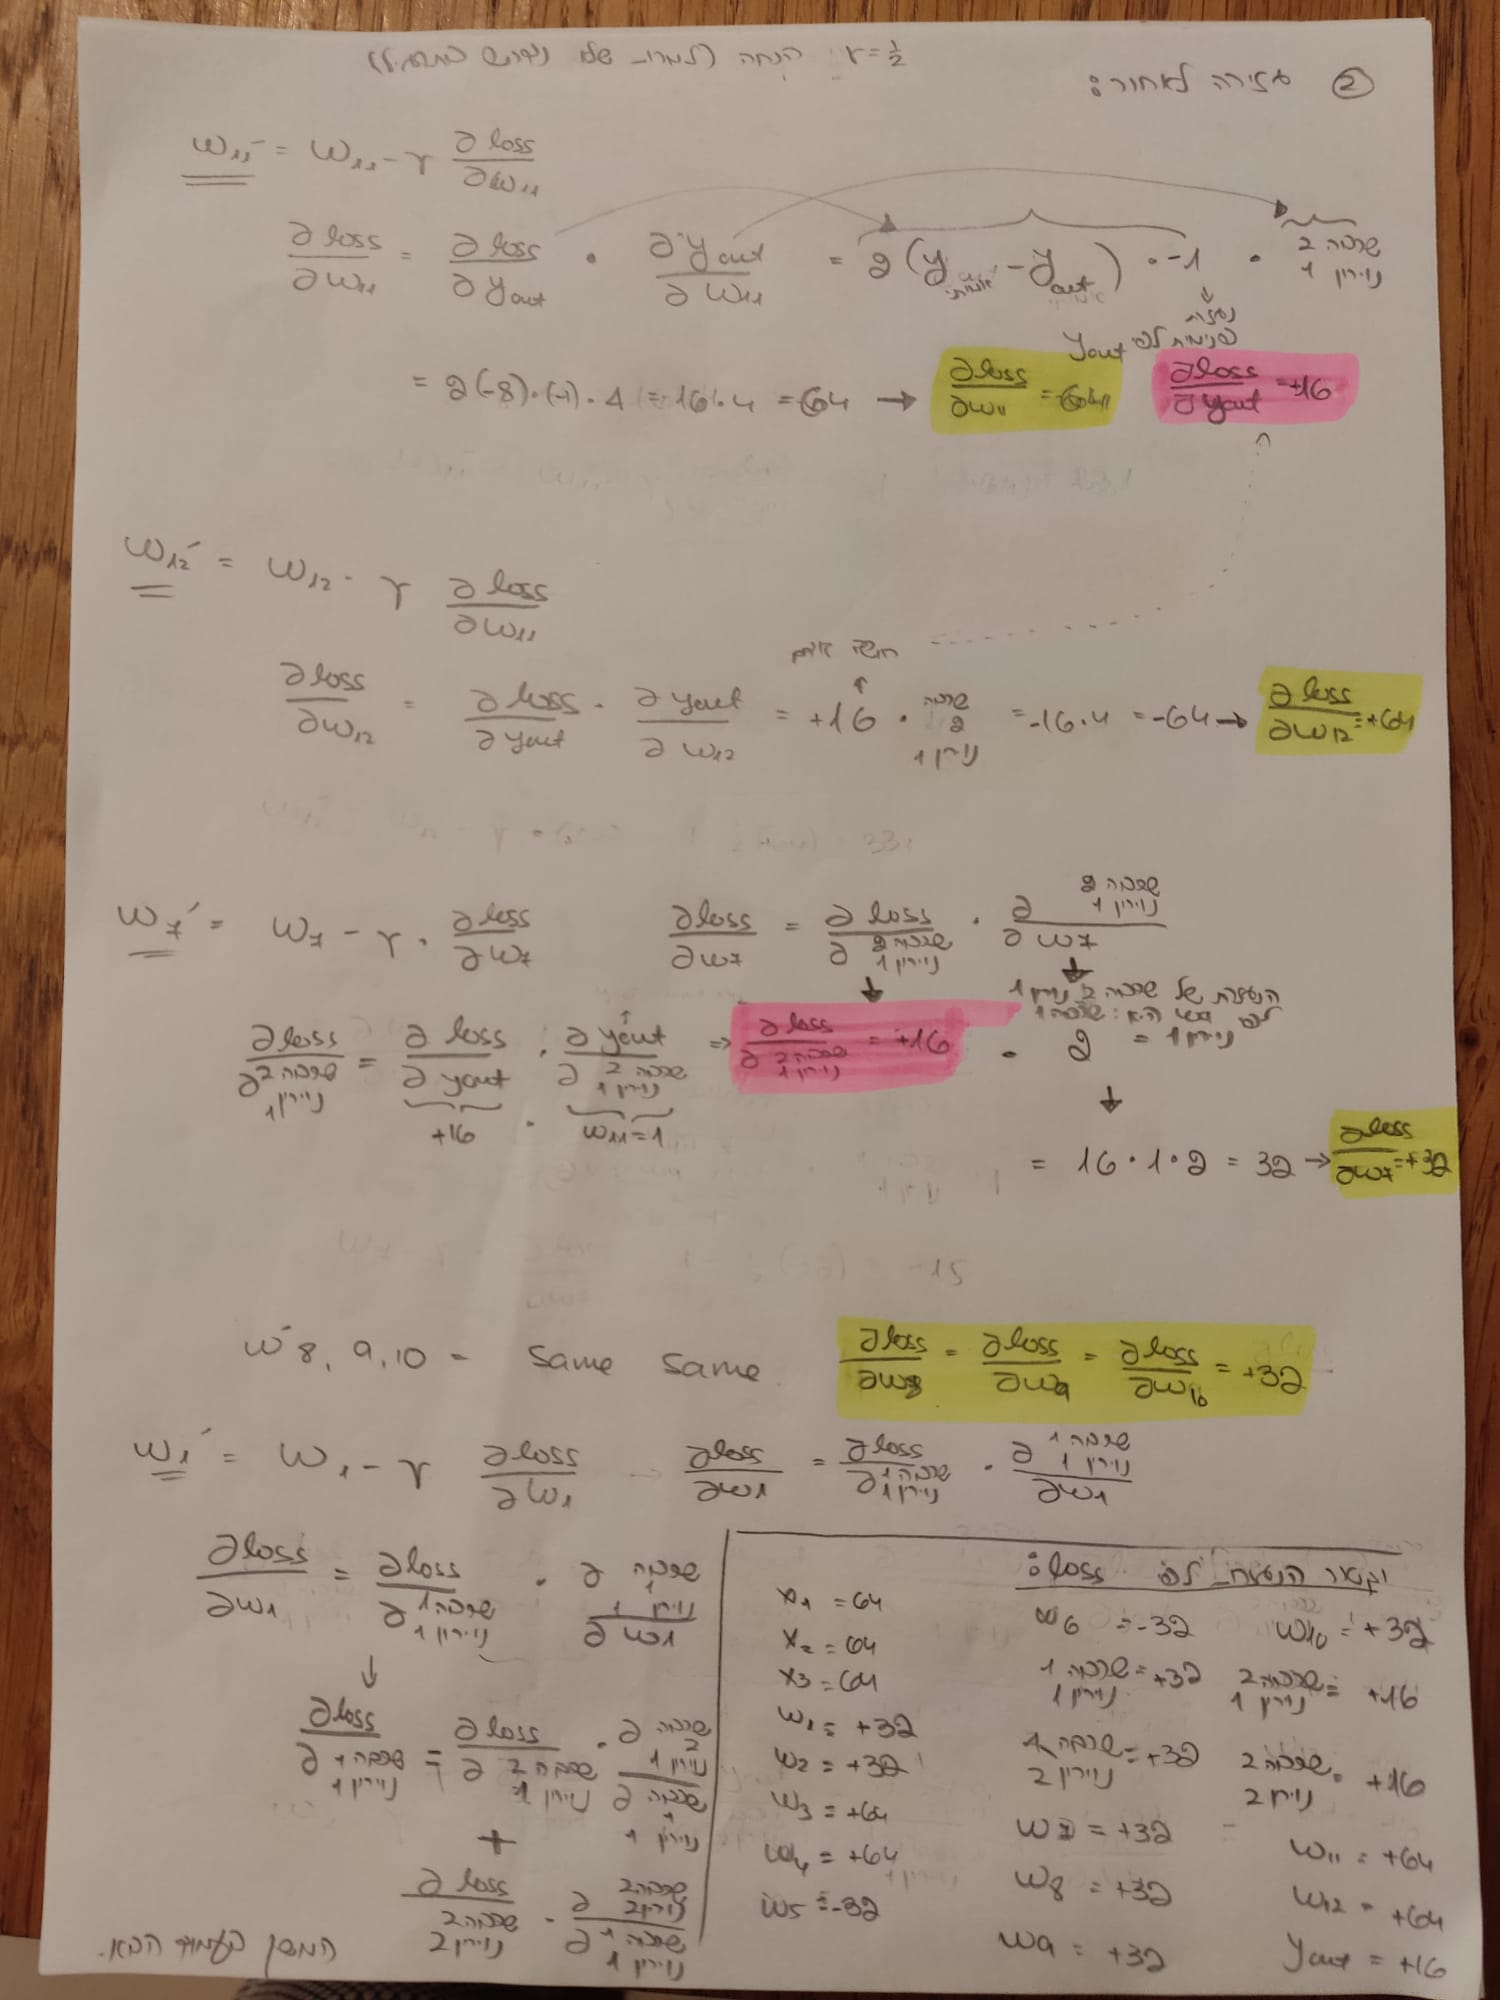 ② גזירה לאחור:
הנחה (למרות שלא נדרש בתרגיל) : r = 1/2
w₁₁' = w₁₁ - r ∂loss/∂w₁₁
∂loss/∂w₁₁ = ∂loss/∂yout · ∂yout/∂w₁₁ = 2(y אמיתי - yout) · -1 · שכבה 2 נוירון 1
נגזרת פנימית לפי yout
= 2(-8)·(-1)·4 = 16·4 = 64 → ∂loss/∂w₁₁ = 64 ∂loss/∂yout = +16
w₁₂' = w₁₂ - r ∂loss/∂w₁₁
חושב קודם
∂loss/∂w₁₂ = ∂loss/∂yout · ∂yout/∂w₁₂ = +16 · שכבה 2 נוירון 1 = -16·4 = -64 → ∂loss/∂w₁₂ = +64
w₇' = w₇ - r · ∂loss/∂w₇ ∂loss/∂w₇ = ∂loss/∂ שכבה 2 נוירון 1 · ∂ שכבה 2 נוירון 1/∂w₇
הנגזרת של שכבה 2 נוירון 1
היא: שכבה 1 נוירון 1 =
∂loss/∂ שכבה 2 נוירון 1 = ∂loss/∂yout · ∂yout/∂ שכבה 2 נוירון 1 ⇒ ∂loss/∂ שכבה 2 נוירון 1 = +16 · 2
+16 · w₁₁=1
= 16·1·2 = 32 → ∂loss/∂w₇ = +32
w'8, 9, 10 = same same ∂loss/∂w₈ = ∂loss/∂w₉ = ∂loss/∂w₁₀ = +32
w₁' = w₁ - r ∂loss/∂w₁ ∂loss/∂w₁ = ∂loss/∂ שכבה 1 נוירון 1 · ∂ שכבה 1 נוירון 1/∂w₁
∂loss/∂w₁ = ∂loss/∂ שכבה 1 נוירון 1 · ∂ שכבה 1 נוירון 1/∂w₁
∂loss/∂ שכבה 1 נוירון 1 = ∂loss/∂ שכבה 2 נוירון 1 · ∂ שכבה 2 נוירון 1/∂ שכבה 1 נוירון 1
+
∂loss/∂ שכבה 2 נוירון 2 · ∂ שכבה 2 נוירון 2/∂ שכבה 1 נוירון 1
המשך בעמוד הבא.
הנגזרות לפי loss:
x₁ = 64
x₂ = 64
x₃ = 64
w₁ = +32
w₂ = +32
w₃ = +64
w₄ = +64
w₅ = -32
w₆ = -32
שכבה 1 נוירון 1 = +32
שכבה 1 נוירון 2 = +32
w₇ = +32
w₈ = +32
w₉ = +32
w₁₀ = +32
שכבה 2 נוירון 1 = +16
שכבה 2 נוירון 2 = +16
w₁₁ = +64
w₁₂ = +64
yout = +16